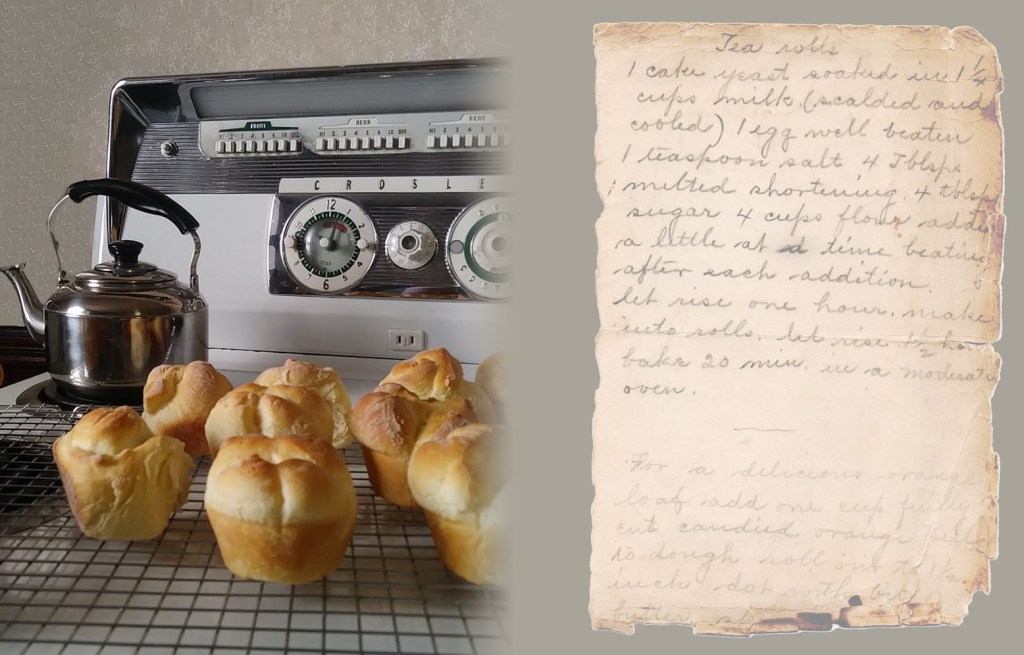 FRONT
REAR
REAR
CROSLE
12
3
6
9
Tea rolls
1 cake yeast soaked in 1 1/4
cups milk (scalded and
cooled) 1 egg well beaten
1 teaspoon salt 4 Tblsps
melted shortening, 4 tblsps
sugar 4 cups flour adde
a little at a time beating
after each addition.
let rise one hour, make
into rolls, let rise 1 1/2 hou
bake 20 min. in a moderate
oven.
For a delicious orange
loaf add one cup finely
cut candied orange peel
to dough roll out to 1 1/2
inch dot with bit
butter